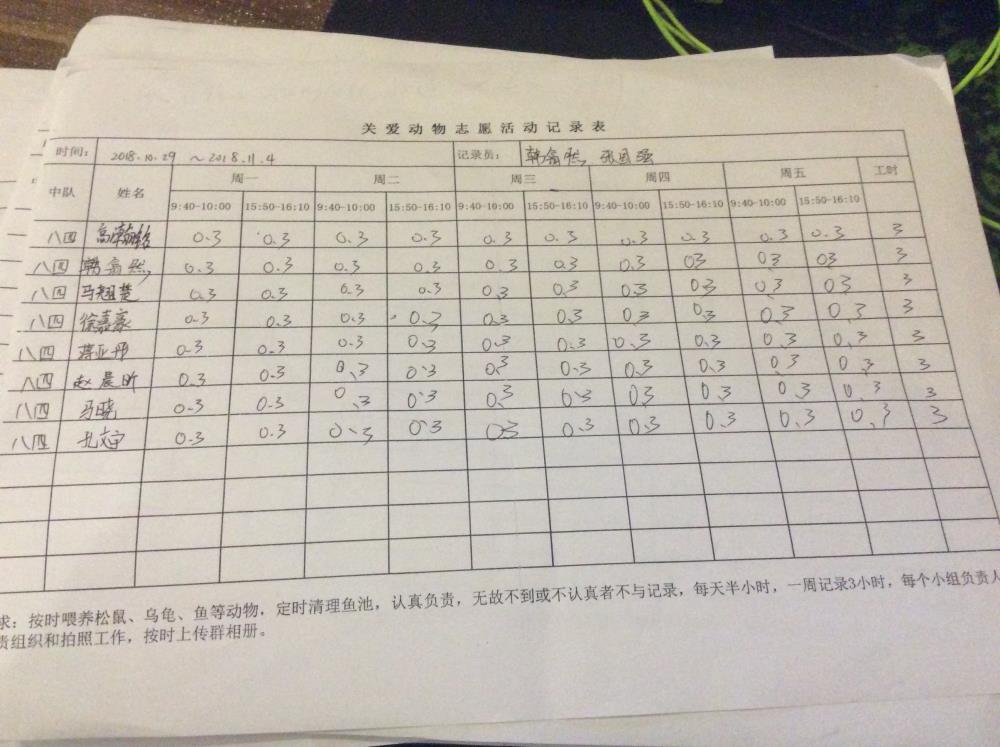 关爱动物志愿活动记录表
时间: 2018.10.29 ~2018.11.4 记录员:
中队 姓名 周一 周二 周三 周四 周五 工时
9:40-10:00 15:50-16:10 9:40-10:00 15:50-16:10 9:40-10:00 15:50-16:10 9:40-10:00 15:50-16:10 9:40-10:00 15:50-16:10
八四 0.3 0.3 0.3 0.3 0.3 0.3 0.3 0.3 0.3 0.3 3
八四 0.3 0.3 0.3 0.3 0.3 0.3 0.3 03 03 03 3
八四 马翘楚 0.3 0.3 0.3 0.3 0.3 0.3 0.3 03 0.3 03 3
八四 徐嘉豪 0.3 0.3 0.3 0.3 0.3 0.3 0.3 0.3 0.3 0.3 3
八四 蒋亚丹 0.3 0.3 0.3 0.3 0.3 0.3 0.3 0.3 0.3 0.3 3
八四 赵晨昕 0.3 0.3 0.3 0.3 0.3 0.3 0.3 0.3 0.3 0.3 3
八四 马晓 0.3 0.3 0.3 0.3 0.3 0.3 03 0.3 0.3 0.3 3
八四 0.3 0.3 0.3 03 03 0.3 0.3 0.3 0.3 0.3 3
求：按时喂养松鼠、乌龟、鱼等动物，定时清理鱼池，认真负责，无故不到或不认真者不与记录，每天半小时，一周记录3小时，每个小组负责人
责组织和拍照工作，按时上传群相册。